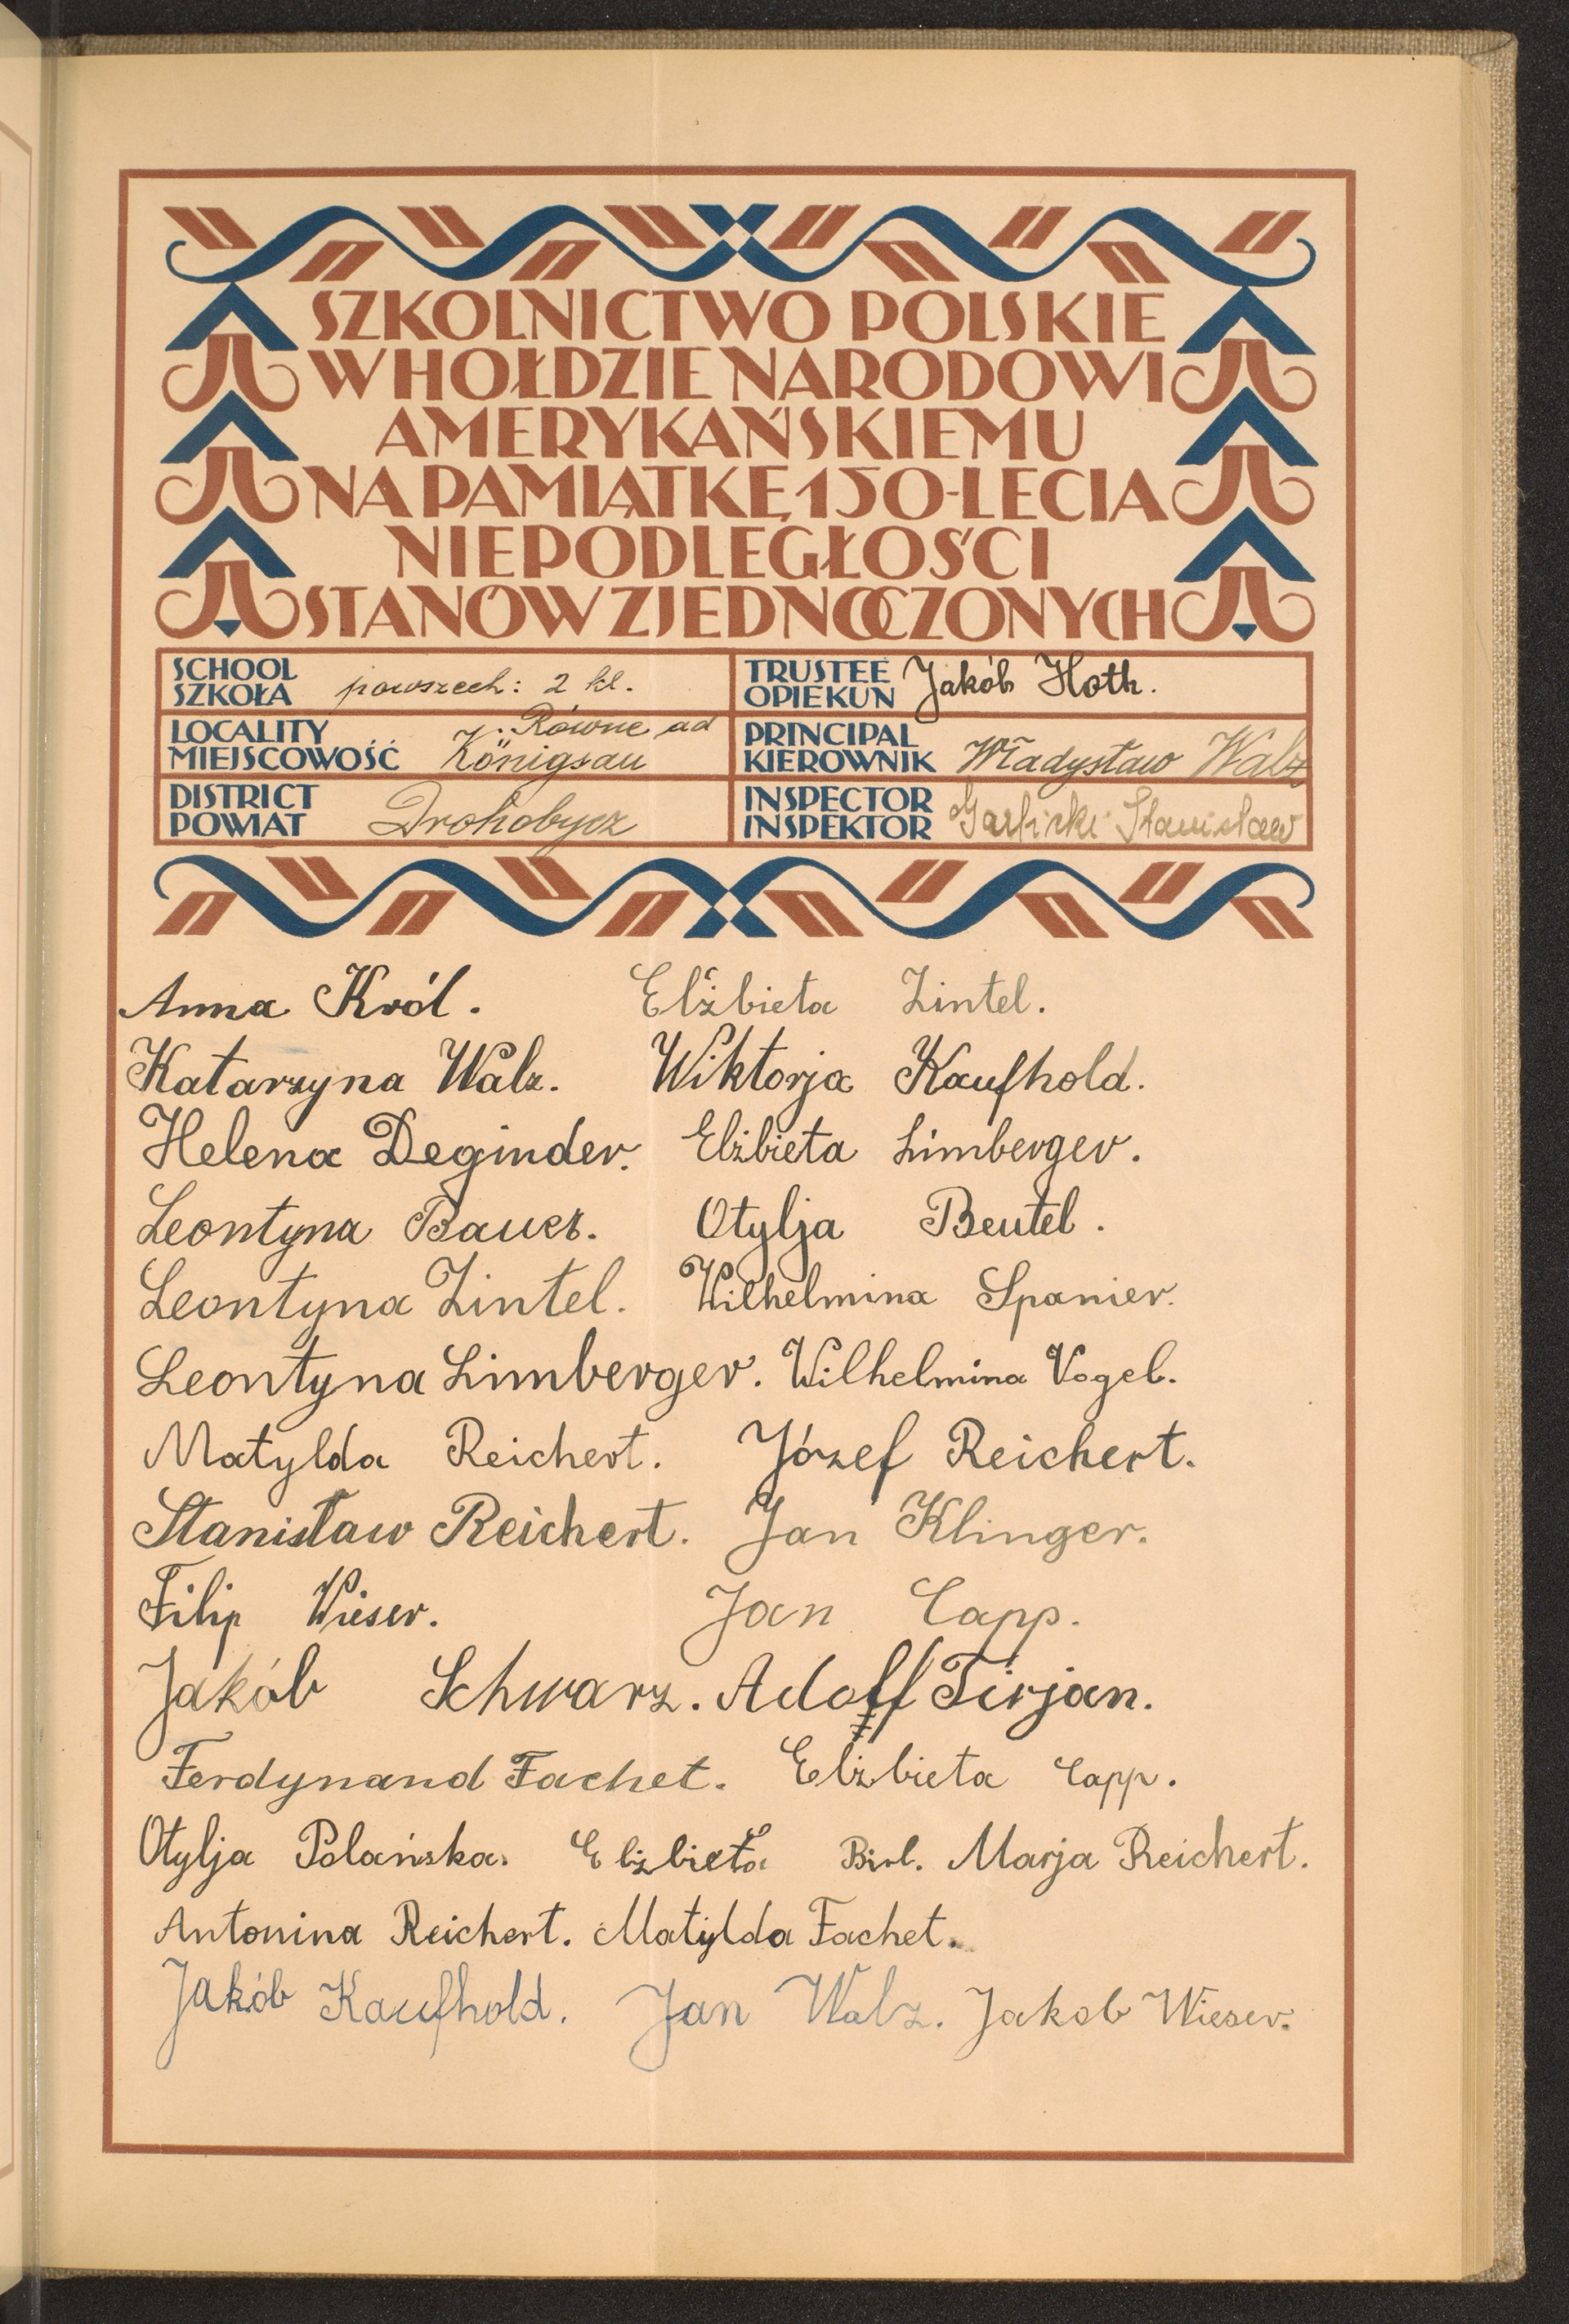 SZKOLNICTWO POLSKIE
W HOŁDZIE NARODOWI
AMERYKAŃSKIEMU
NA PAMIĄTKĘ 150-LECIA
NIEPODLEGŁOŚCI
STANÓW ZJEDNOCZONYCH
SCHOOL
SZKOŁA powszech: 2 kl.
TRUSTEE
OPIEKUN Jakób Hoth.
LOCALITY Równe ad
MIEJSCOWOŚĆ Königsau
PRINCIPAL
KIEROWNIK Władysław Walz
DISTRICT
POWIAT Drohobycz
INSPECTOR
INSPEKTOR Garlicki Stanisław
Anna Król. Elżbieta Zintel.
Katarzyna Walz. Wiktorja Kaufhold.
Helena Deginder. Elżbieta Limberger.
Leontyna Bauer. Otylja Beutel.
Leontyna Zintel. Wilhelmina Spanier.
Leontyna Limberger. Wilhelmina Vogel.
Matylda Reichert. Józef Reichert.
Stanisław Reichert. Jan Klinger.
Filip Wieser. Jan Capp.
Jakób Schwarz. Adolf Tirjan.
Ferdynand Fachet. Elżbieta Capp.
Otylja Polańska. Elżbieta Marja Reichert.
Antonina Reichert. Matylda Fachet.
Jakób Kaufhold. Jan Walz. Jakob Wieser.